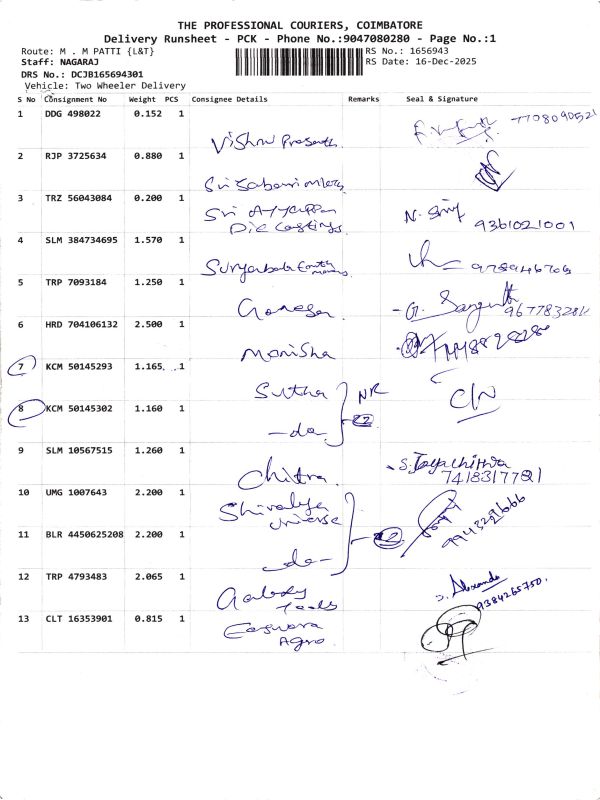 THE PROFESSIONAL COURIERS, COIMBATORE
Delivery Runsheet - PCK - Phone No.:9047080280 - Page No.:1
Route: M . M PATTI {L&T} RS No.: 1656943
Staff: NAGARAJ RS Date: 16-Dec-2025
DRS No.: DCJB165694301
Vehicle: Two Wheeler Delivery
S No Consignment No Weight PCS Consignee Details Remarks Seal & Signature
1 DDG 498022 0.152 1 Vishnu Prasanth 7708090521
2 RJP 3725634 0.880 1 Sri
3 TRZ 56043084 0.200 1 Sri Ayyappan 9361021001
Die Castings
4 SLM 384734695 1.570 1
5 TRP 7093184 1.250 1 Ganesan
6 HRD 704106132 2.500 1 Monisha
7 KCM 50145293 1.165 1 Sutha NR
8 KCM 50145302 1.160 1 -do- 2 C/N
9 SLM 10567515 1.260 1 Chitra 7418317721
10 UMG 1007643 2.200 1 Shivalya
universe
11 BLR 4450625208 2.200 1 -do- 2
12 TRP 4793483 2.065 1 Tools 9384265750
13 CLT 16353901 0.815 1 Easwara
Agro